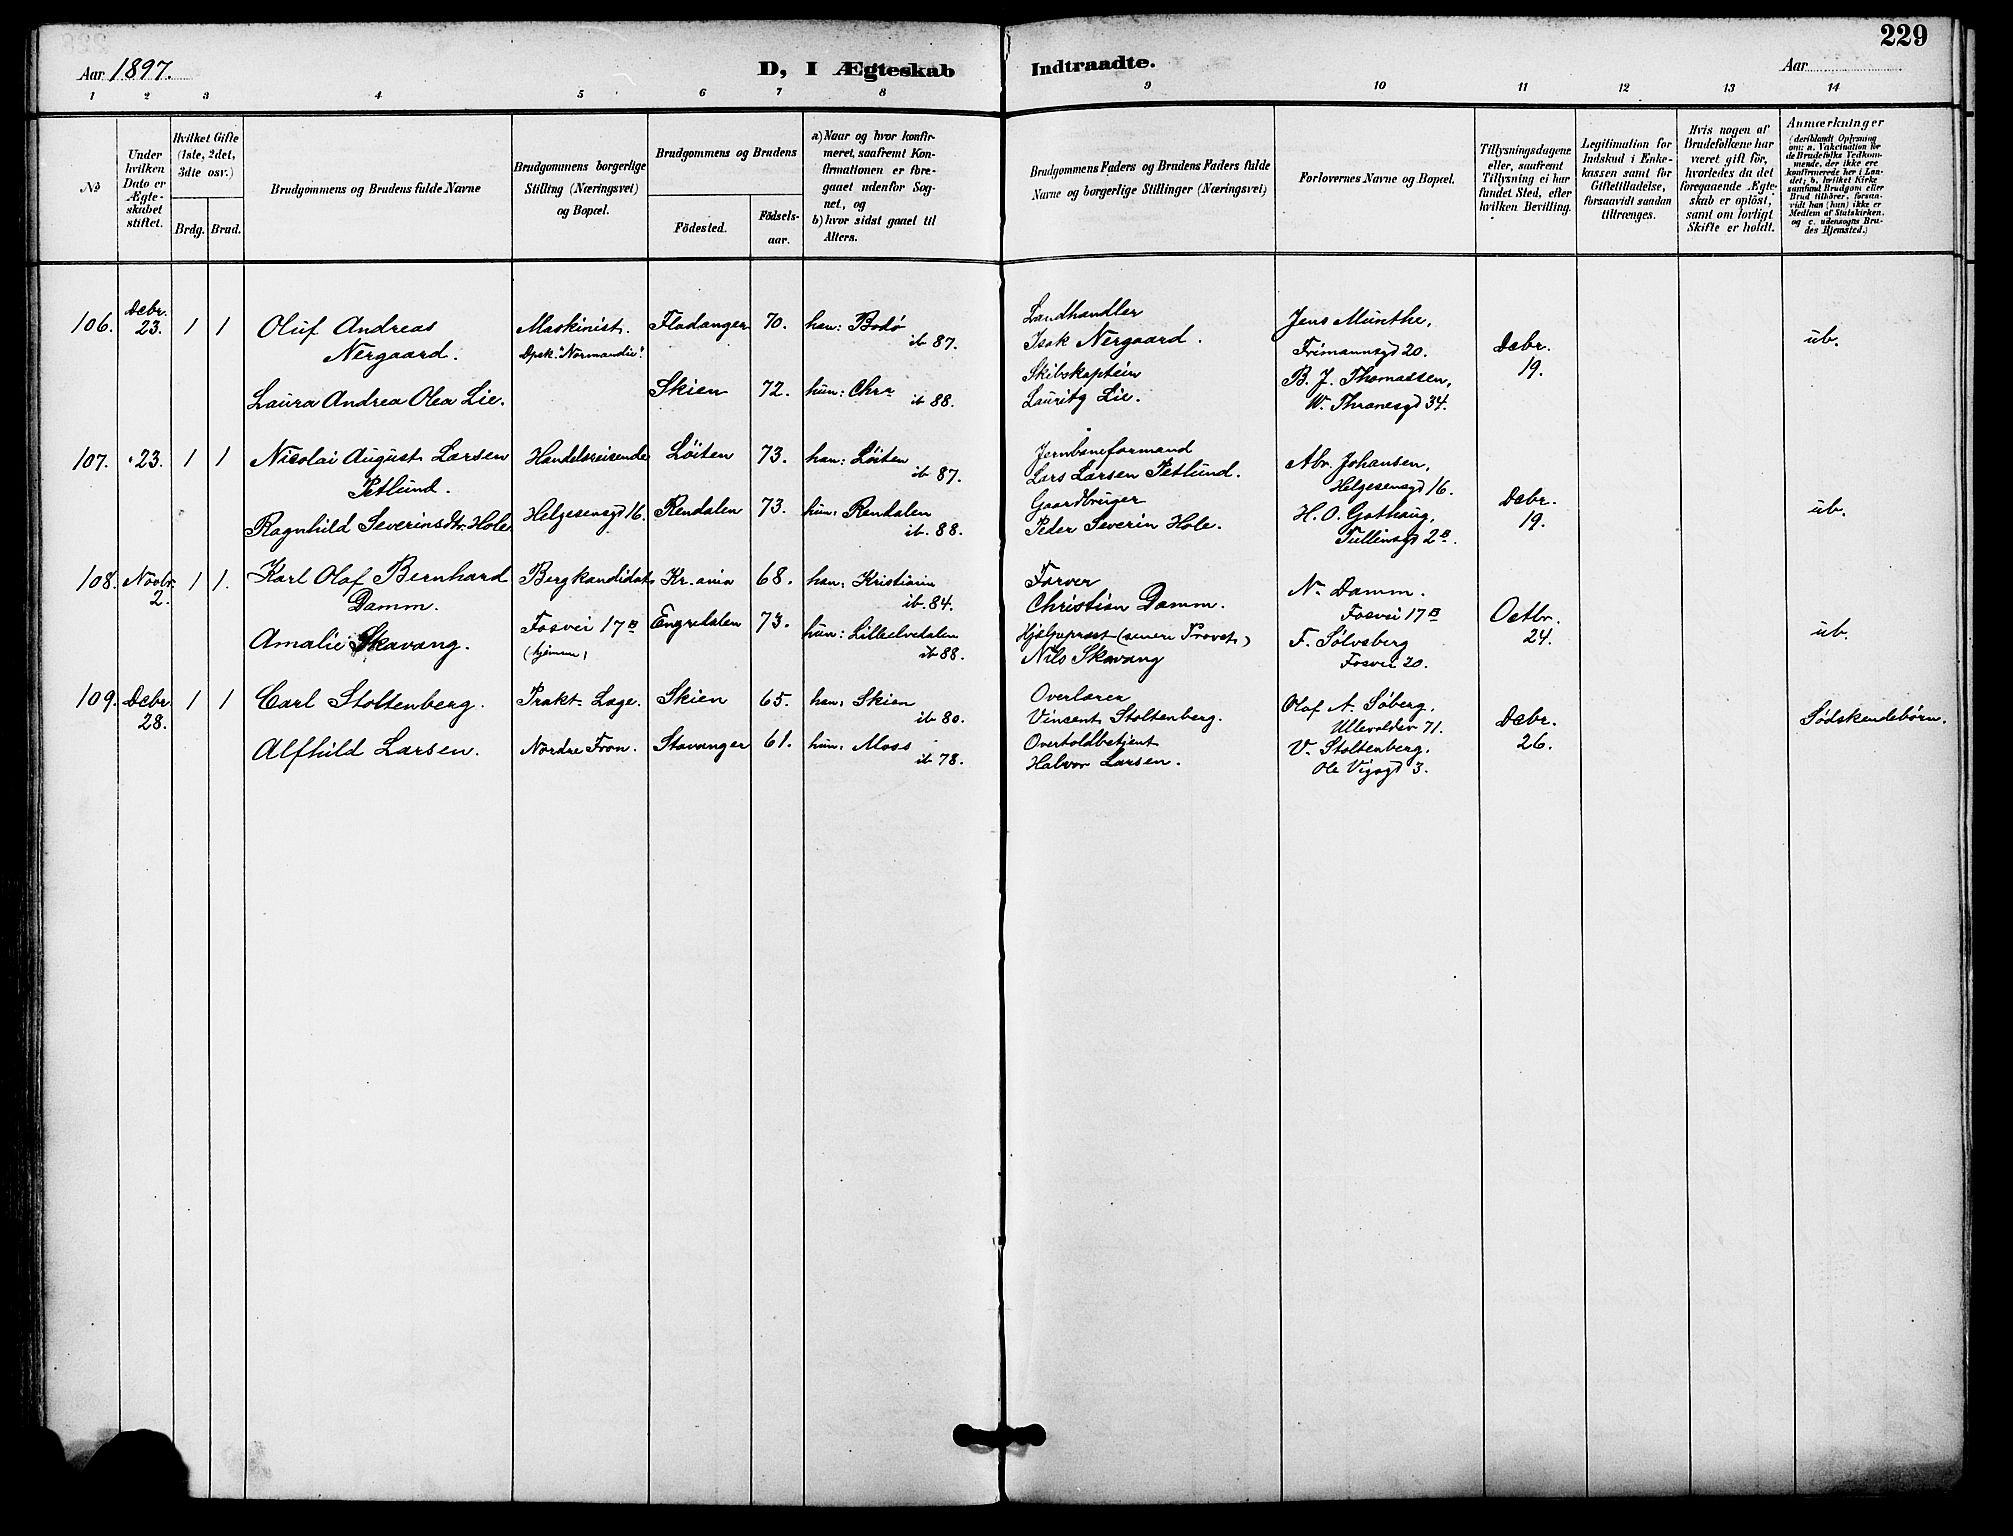 229
Aar 1897.
D, I Ægteskab Indtraadte.
Aar
1 2 3 4 5 6 7 8 9 10 11 12 13 14
No
Under hvilken Dato er Ægteskabet stiftet.
Hvilket Gifte (1ste, 2det, 3die osv.)
Brdg. Brud.
Brudgommens og Brudens fulde Navne
Brudgommens borgerlige Stilling (Næringsvei) og Bopæl.
Brudgommens og Brudens
Födested.
Födselsaar.
a) Naar og hvor konfirmeret, saafremt Konfirmationen er foregaaet udenfor Sognet, og
b) hvor sidst gaaet til Alters.
Brudgommens Faders og Brudens Faders fulde Navne og borgerlige Stillinger (Næringsvei)
Forlovernes Navne og Bopæl.
Tillysningsdagene eller, saafremt Tillysning ei har fundet Sted, efter hvilken Bevilling.
Legitimation for Indskud i Enkekassen samt for Giftetilladelse, forsaavidt saadan tiltrænges.
Hvis nogen af Brudefolkene har været gift för, hvorledes da det foregaaende Ægteskab er oplöst, samt om lovligt Skifte er holdt.
Anmærkninger
(deriblandt Oplysning om: a. Vakcination for de Brudefolks Vedkommende, der ikke ere konfirmerede her i Landet; b. hvilket Kirkesamfund Brudgom eller Brud tilhörer, forsaavidt han (hun) ikke er Medlem af Statskirken, og c. udensogns Brudes Hjemsted.)
106. Decbr. 23. 1 1
Oluf Andreas
Nergaard.
Maskinist.
Dpsk. "Normandie".
Fladanger 70. han: Bodø
ib 87.
Landhandler
Isak Nergaard.
Jens Munthe,
Frimannsgd 20.
Decbr.
19.
ub.
Laura Andrea Olea Lie.
Skien 72. hun: Chra
ib 88.
Skibskaptein
Lauritz Lie.
B. J. Thomassen,
W. Thranesgd 34.
107. " 23. 1 1
Nicolai August Larsen
Petlund.
Handelsreisende
Løiten 73. han: Løiten
ib 87.
Jernbaneformand
Lars Larsen Petlund.
Abr. Johansen,
Helgesensgd 16.
Decbr.
19.
ub.
Ragnhild Severinsdtr. Hole
Helgesensgd 16.
Rendalen 73. hun: Rendalen
ib. 88.
Gaardbruger
Peder Severin Hole.
H. O. Gathaug,
Tullinsgd 2B.
108. Novbr. 2. 1 1.
Karl Olaf Bernhard
Damm.
Bergkandidat
Kr.ania 68. han: Kristiania
ib. 84.
Farver
Christian Damm.
N. Damm.
Fosvei 17B
Octbr.
24.
ub.
Amalie Skavang.
Fosvei 17B
(hjemme)
Engerdalen 73. hun: Lilleelvedalen
ib 88.
Hjælpeprest (senere Provst)
Nils Skavang
F. Sølvsberg
Fosvei 20.
109. Decbr 28. 1 1
Carl Stoltenberg.
Prakt. Læge.
Skien 65. han: Skien
ib 80.
Overlærer
Vinsent Stoltenberg.
Olaf A. Søberg,
Ullevoldsv 71.
Decbr.
26.
Sødskendebørn.
Alfhild Larsen.
Nordre Fron.
Stavanger 61. hun: Moss
ib 78.
Overtoldbetjent
Halvor Larsen.
V. Stoltenberg,
Ole Vigsgd 3.